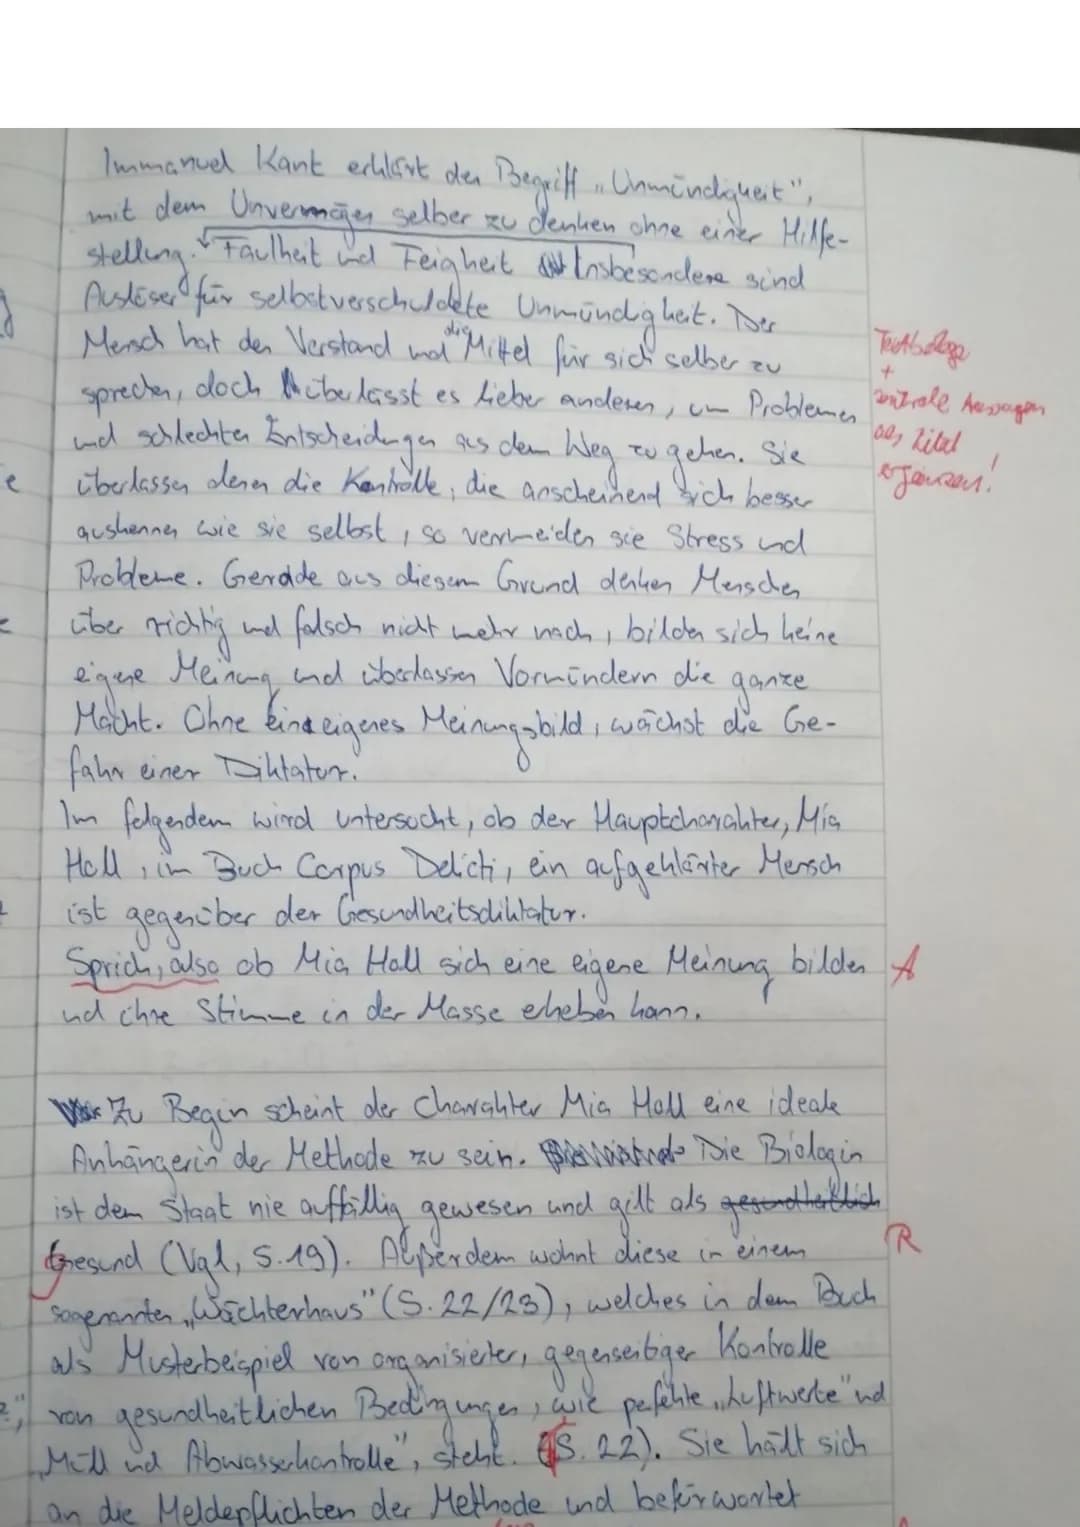 Immanuel Kant erklärt den Begriff „Unmündigkeit",
mit dem Unvermögen selber zu denken ohne einer Hilfe-
stellung. Faulheit und Feigheit Insbesondere sind
Auslöser für selbstverschuldete Unmündigkeit. Der
Mensch hat den Verstand und die Mittel für sich selber zu
sprechen, doch überlässt es lieber anderen, um Problemen
und schlechten Entscheidungen aus dem Weg zu gehen. Sie
überlassen denen die Kontrolle, die anscheinend sich besser
auskennen wie sie selbst, so vermeiden sie Stress und
Probleme. Gerade aus diesem Grund denken Menschen
über richtig und falsch nicht mehr nach, bilden sich keine
eigene Meinung und überlassen Vormündern die ganze
Macht. Ohne eigenes Meinungsbild, wächst die Ge-
fahr einer Diktatur.
Im folgendem wird untersucht, ob der Hauptcharakter, Mia
Holl, im Buch Corpus Delicti, ein aufgeklärter Mensch
ist gegenüber der Gesundheitsdiktatur.
Sprich, also ob Mia Holl sich eine eigene Meinung bilden
und ihre Stimme in der Masse erheben kann.
Zu Begin scheint der Charakter Mia Holl eine ideale
Anhängerin der Methode zu sein. Die Biologin
ist dem Staat nie auffällig gewesen und gilt als gesundheitlich
Gesund (Vgl, S.19). Außerdem wohnt diese in einem
sogenannten „Wächterhaus" (S. 22/23), welches in dem Buch
als Musterbeispiel von organisierter, gegenseitiger Kontrolle
von gesundheitlichen Bedingungen, wie perfekte „Luftwerte" und
„Müll und Abwasserkontrolle", steht. (S. 22). Sie hält sich
an die Meldepflichten der Methode und befürwortet
Textbelege
+
zentrale Aussagen
als Zitat
ergänzen!
A
R